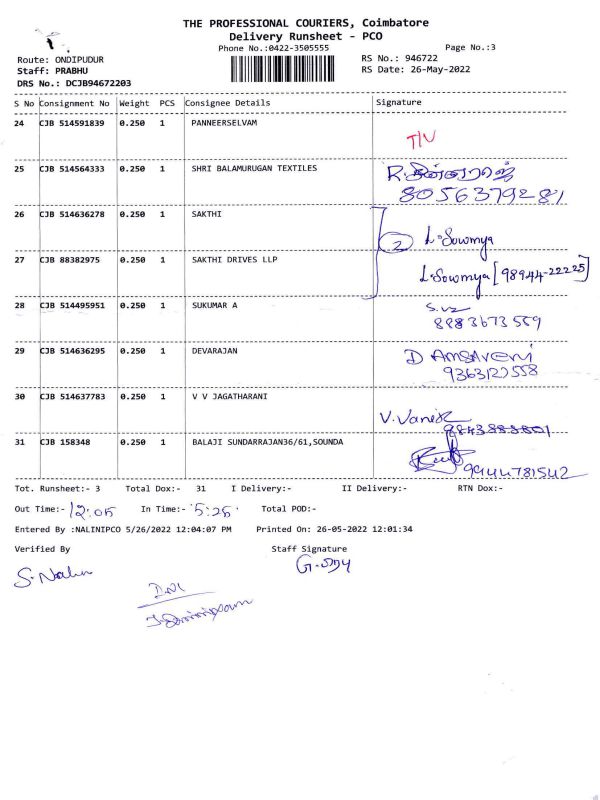 THE PROFESSIONAL COURIERS, Coimbatore
Delivery Runsheet - PCO
Phone No.:0422-3505555
Page No.:3
Route: ONDIPUDUR
RS No.: 946722
Staff: PRABHU
RS Date: 26-May-2022
DRS No.: DCJB94672203
S No Consignment No Weight PCS Consignee Details Signature
24 CJB 514591839 0.250 1 PANNEERSELVAM
25 CJB 514564333 0.250 1 SHRI BALAMURUGAN TEXTILES
8056379281
26 CJB 514636278 0.250 1 SAKTHI
2 L.Sowmya
27 CJB 88382975 0.250 1 SAKTHI DRIVES LLP
L.Sowmya [98944-22225]
28 CJB 514495951 0.250 1 SUKUMAR A
8883673559
29 CJB 514636295 0.250 1 DEVARAJAN D AMSAVENI
9363127558
30 CJB 514637783 0.250 1 V V JAGATHARANI
9843883801
31 CJB 158348 0.250 1 BALAJI SUNDARRAJAN36/61,SOUNDA
9944781542
Tot. Runsheet:- 3 Total Dox:- 31 I Delivery:- II Delivery:- RTN Dox:-
Out Time:- 12:05 In Time:- 5:25 Total POD:-
Entered By :NALINIPCO 5/26/2022 12:04:07 PM Printed On: 26-05-2022 12:01:34
Verified By Staff Signature